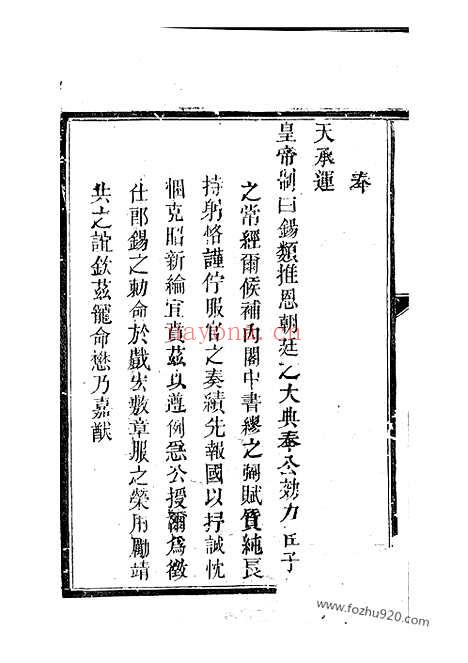 奉
天承運
皇帝制曰錫類推恩朝廷之大典奉公効力臣子
之常經爾候補內閣中書繆之弼賦質純良
持躬恪謹佇服官之奏績先報國以抒誠忱
悃克昭新綸宜賁茲以遵例急公授爾爲徵
仕郎錫之勅命於戲宏敷章服之榮用勵靖
共之誼欽茲寵命懋乃嘉猷
nayona.cn
www.fozhu920.com